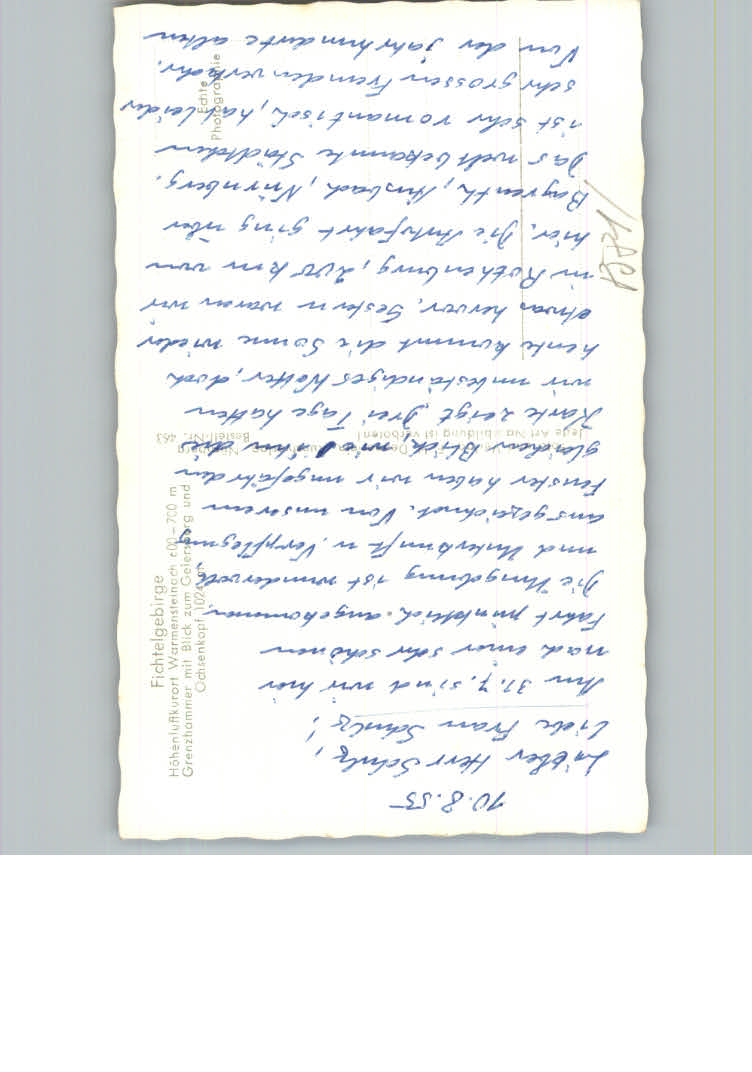 10.8.55
Lieber Herr Schulz,
Liebe Frau Schulz!
Am 31.7. sind wir hier
nach einer sehr schönen
Fahrt pünktlich angekommen.
Die Umgebung ist wundervoll
und Unterkunft u. Verpflegung
ausgezeichnet. Von unserem
Fenster haben wir ungefähr den
gleichen Blick wie ihn die
Karte zeigt. Drei Tage hatten
wir unbeständiges Wetter, doch
heute kommt die Sonne wieder
etwas hervor. Gestern waren wir
in Rothenburg, 200 km von
hier. Die Autofahrt ging über
Bayreuth, Ansbach, Nürnberg.
Das weltbekannte Städtchen
ist sehr romantisch, hat leider
sehr grossen Fremdenverkehr.
Von der jahrhunderte alten
Fichtelgebirge
Höhenluftkurort Warmensteinach 600–700 m
Grenzhammer mit Blick zum Geiersberg und
Ochsenkopf 1024 m
Nürnberg
Bestell-Nr. 463
Jede Art Nachbildung ist verboten!
Echte
Photographie